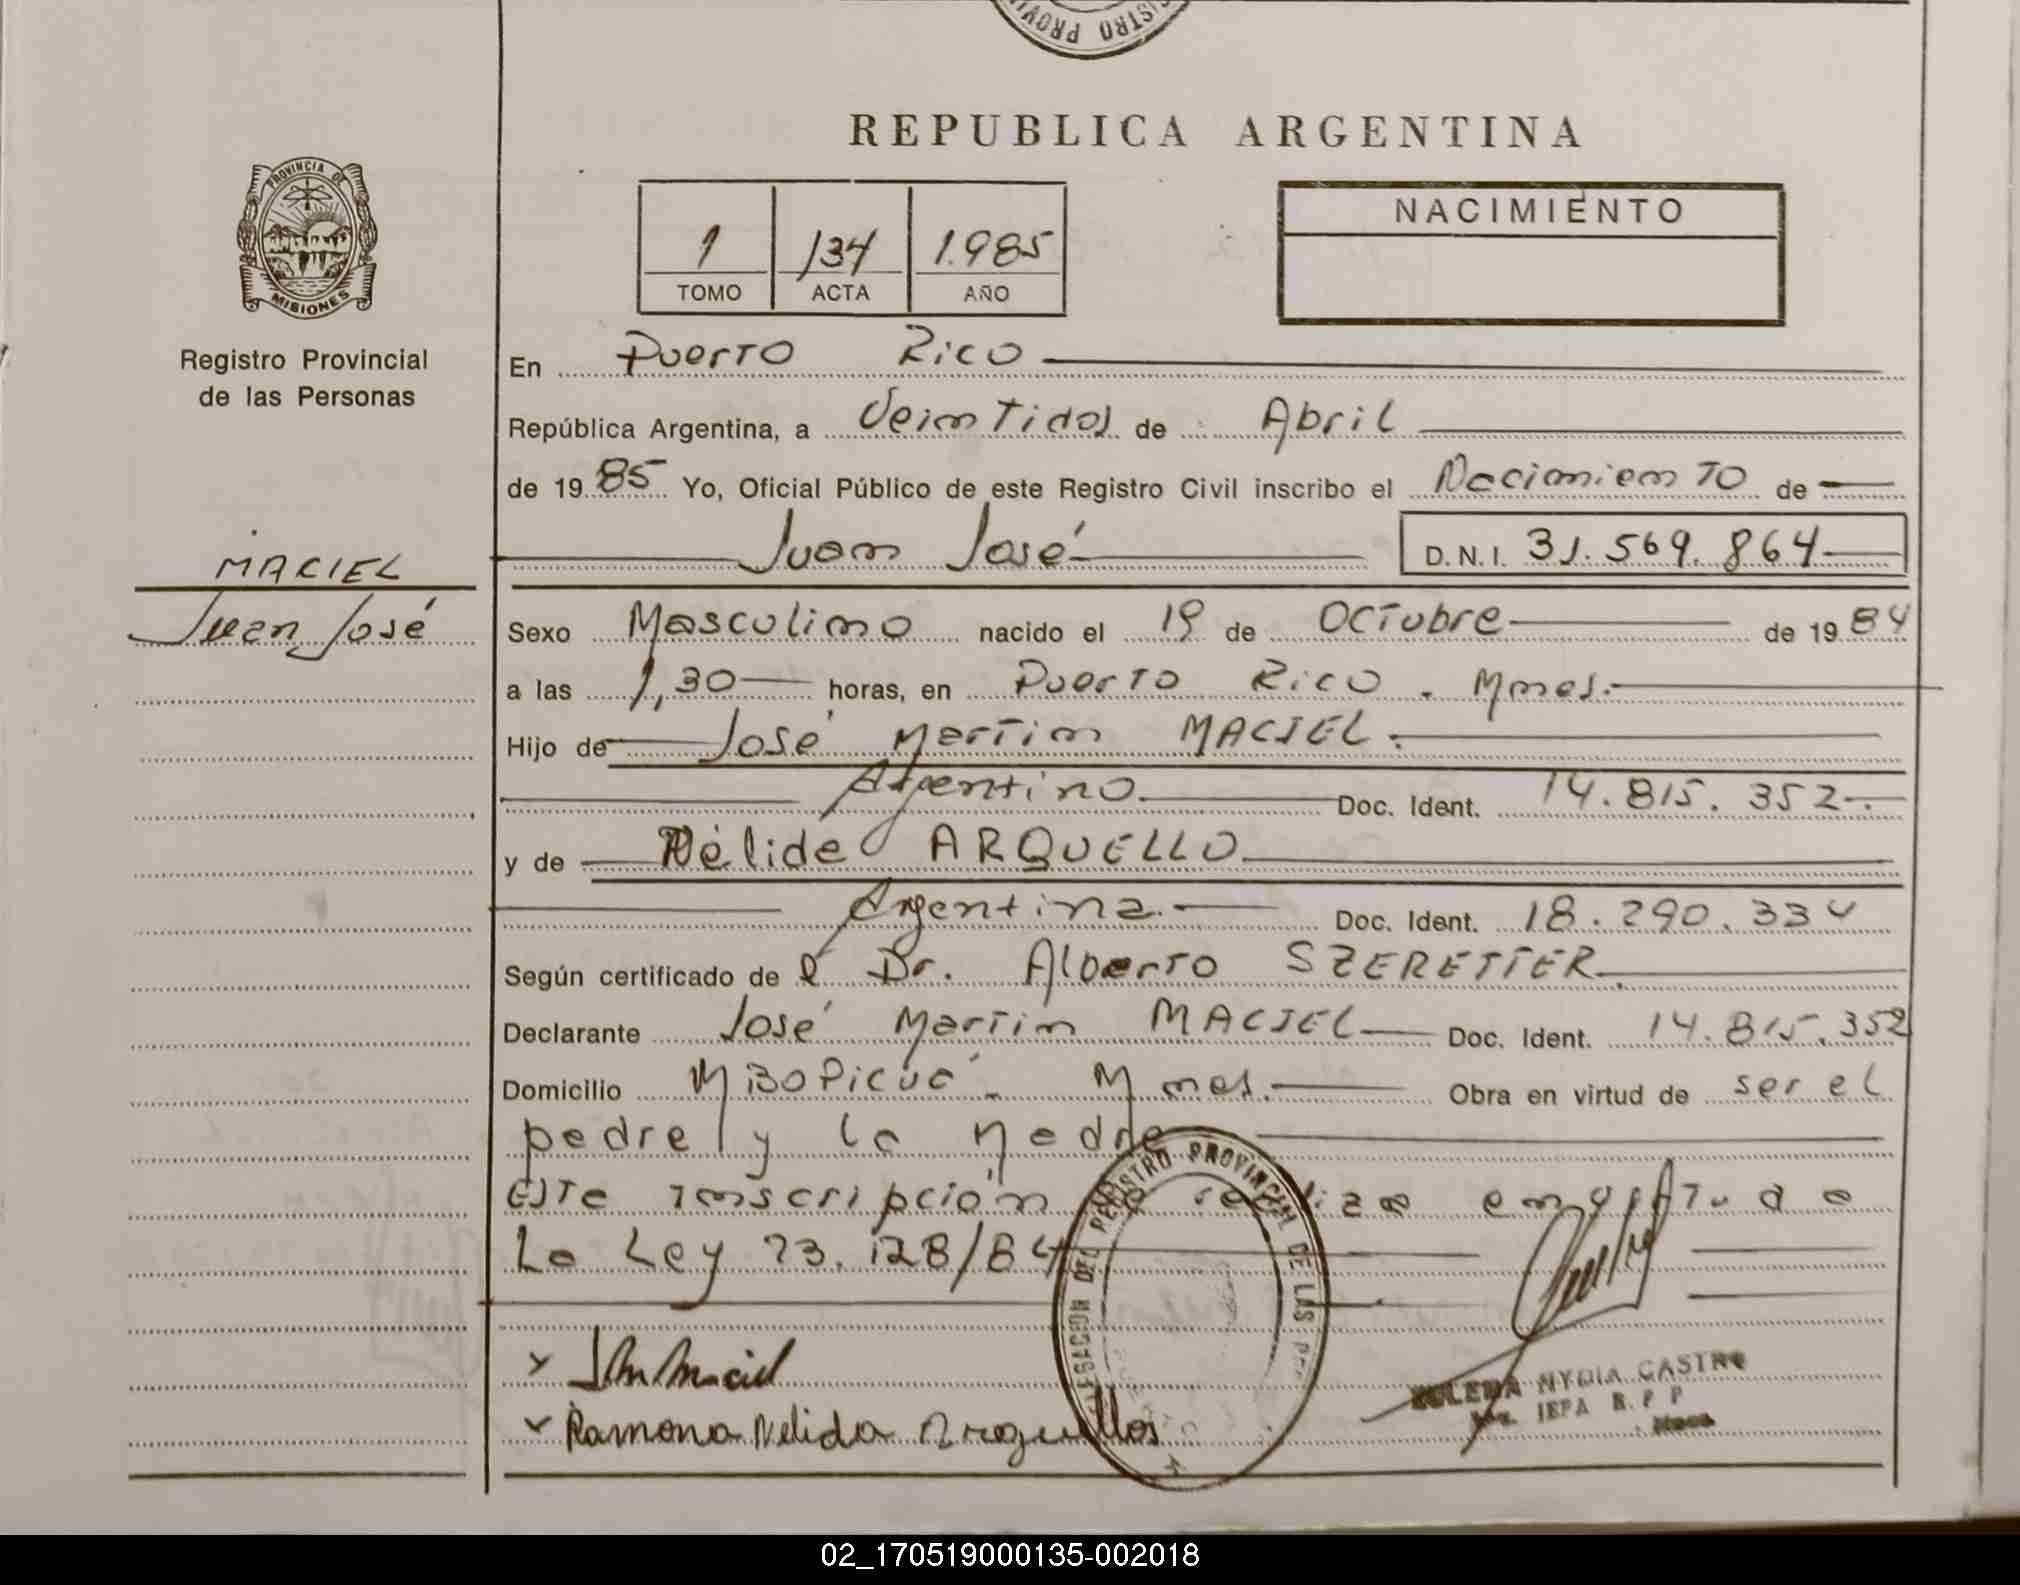 REPUBLICA ARGENTINA
PROVINCIA DE
MISIONES
Registro Provincial
de las Personas
1 134 1.985
TOMO ACTA AÑO
NACIMIENTO
En Puerto Rico
República Argentina, a Veintidos de Abril
de 19 85 Yo, Oficial Público de este Registro Civil inscribo el Nacimiento de
Juan José D.N.I. 31.569.864
MACIEL
Juan José
Sexo Masculino nacido el 19 de Octubre de 19 84
a las 1,30 horas, en Puerto Rico. Mnes.
Hijo de José Martin MACIEL.
Argentino Doc. Ident. 14.815.352
y de Nélida ARQUELLO
Argentina. Doc. Ident. 18.290.334
Según certificado de el Dr. Alberto SZERETTER.
Declarante José Martin MACIEL Doc. Ident. 14.815.352
Domicilio MBOPICUÁ. Mnes. Obra en virtud de ser el
padre y la Madre
Esta inscripción se realiza en virtud a
La Ley 23.128/84
Maciel
Ramona Nelida Arguellos
REGISTRO PROVINCIAL DE LAS
NYDIA CASTRO
JEFA R.P.P
02_170519000135-002018